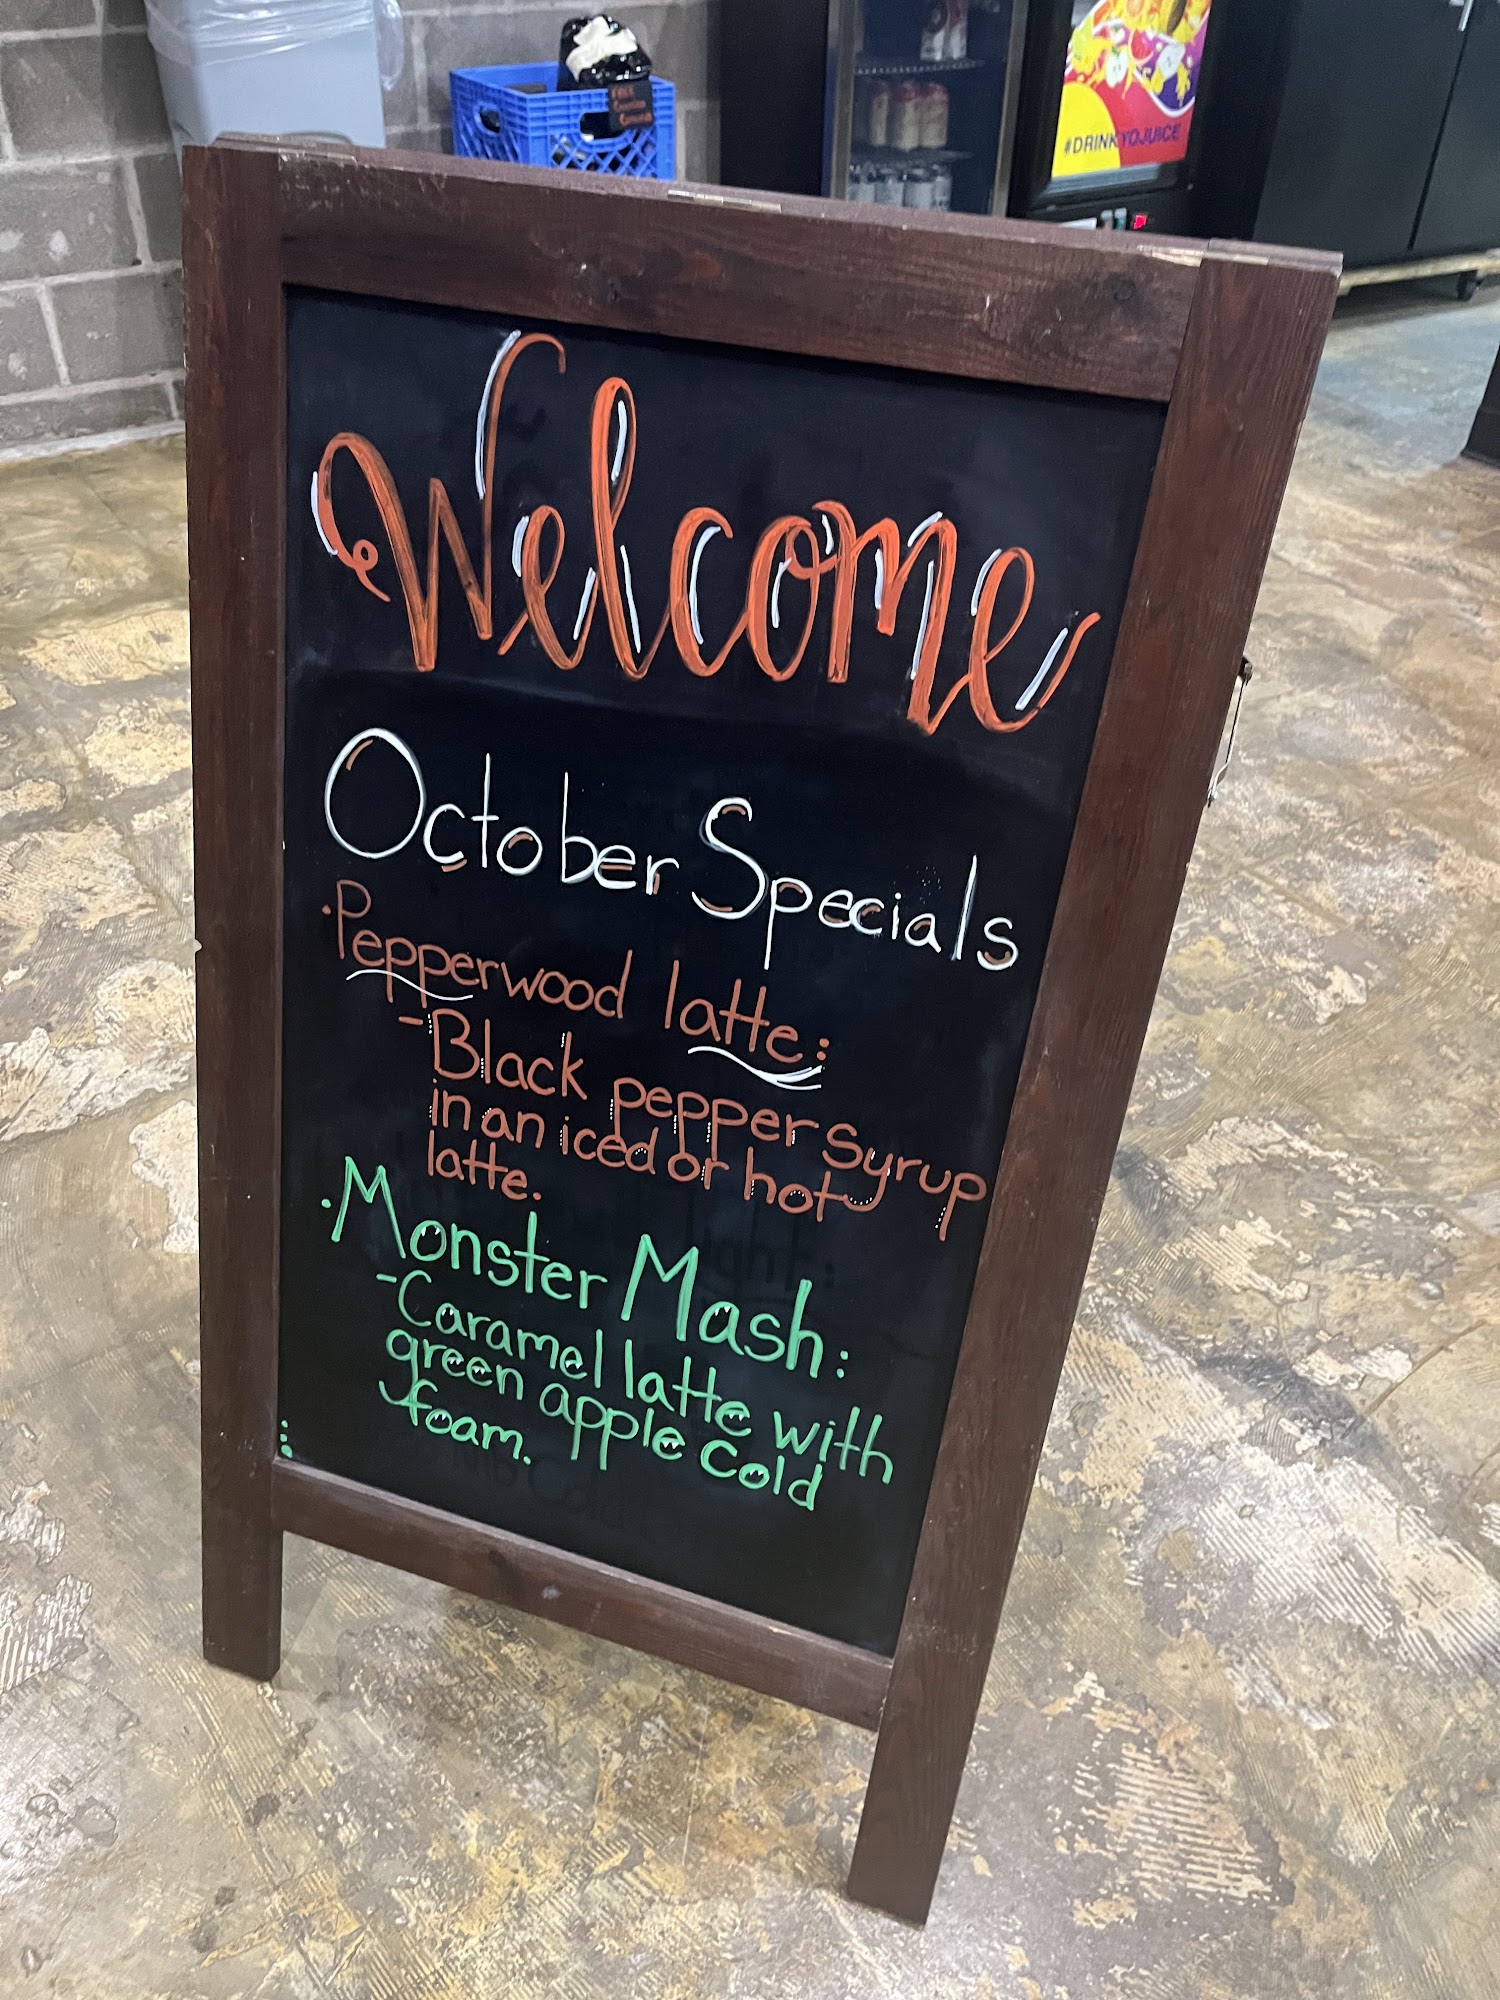 FREE
#DRINKYOJUICE
Welcome
October Specials
·Pepperwood latte:
-Black pepper syrup
in an iced or hot
latte.
·Monster Mash:
-Caramel latte with
green apple cold
foam.